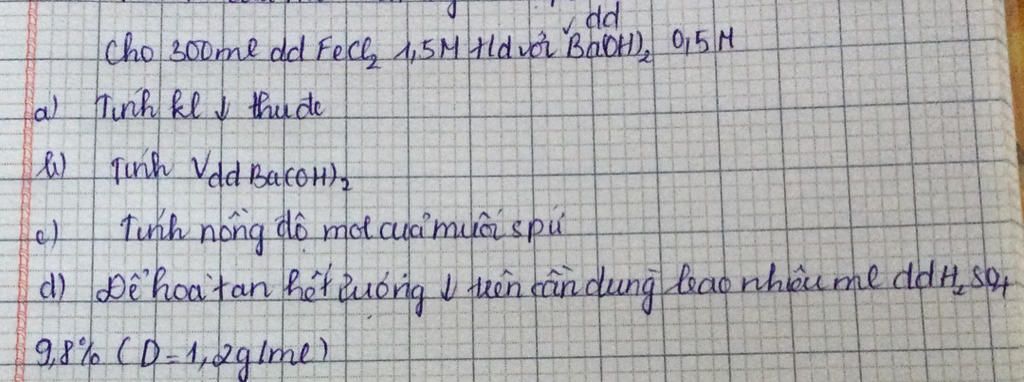 dd
Cho 300ml dd FeCl₂ 1,5M t/d với Ba(OH)₂ 0,5M
a) Tính kl ↓ thu đc
b) Tính Vdd Ba(OH)₂
c) Tính nồng độ mol của muối spứ
d) Để hoà tan hết lượng ↓ trên cần dùng bao nhiêu ml dd H₂SO₄
9,8% (D = 1,2g/ml)